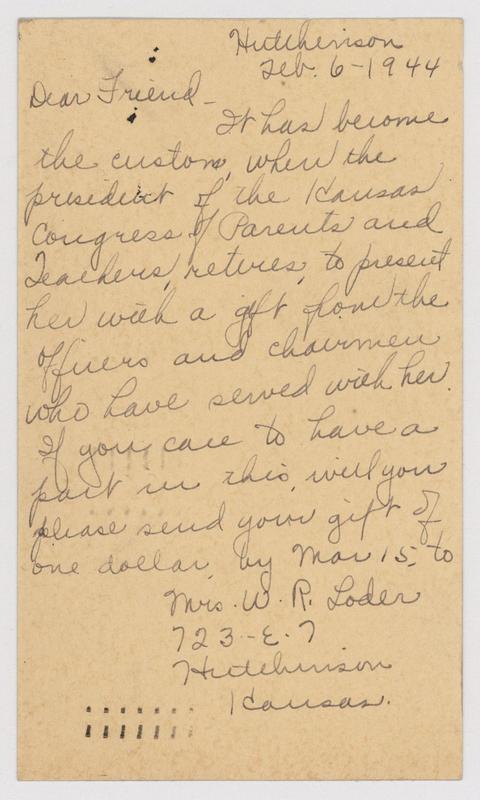 Hutchinson
Feb. 6-1944
Dear Friend-
It has become
the custom, when the
president of the Kansas
Congress of Parents and
Teachers, retires, to present
her with a gift from the
officers and chairmen
who have served with her.
If you care to have a
part in this, will you
please send your gift of
one dollar, by Mar 15, to
Mrs. W. R. Loder
723-E-7
Hutchinson
Kansas.